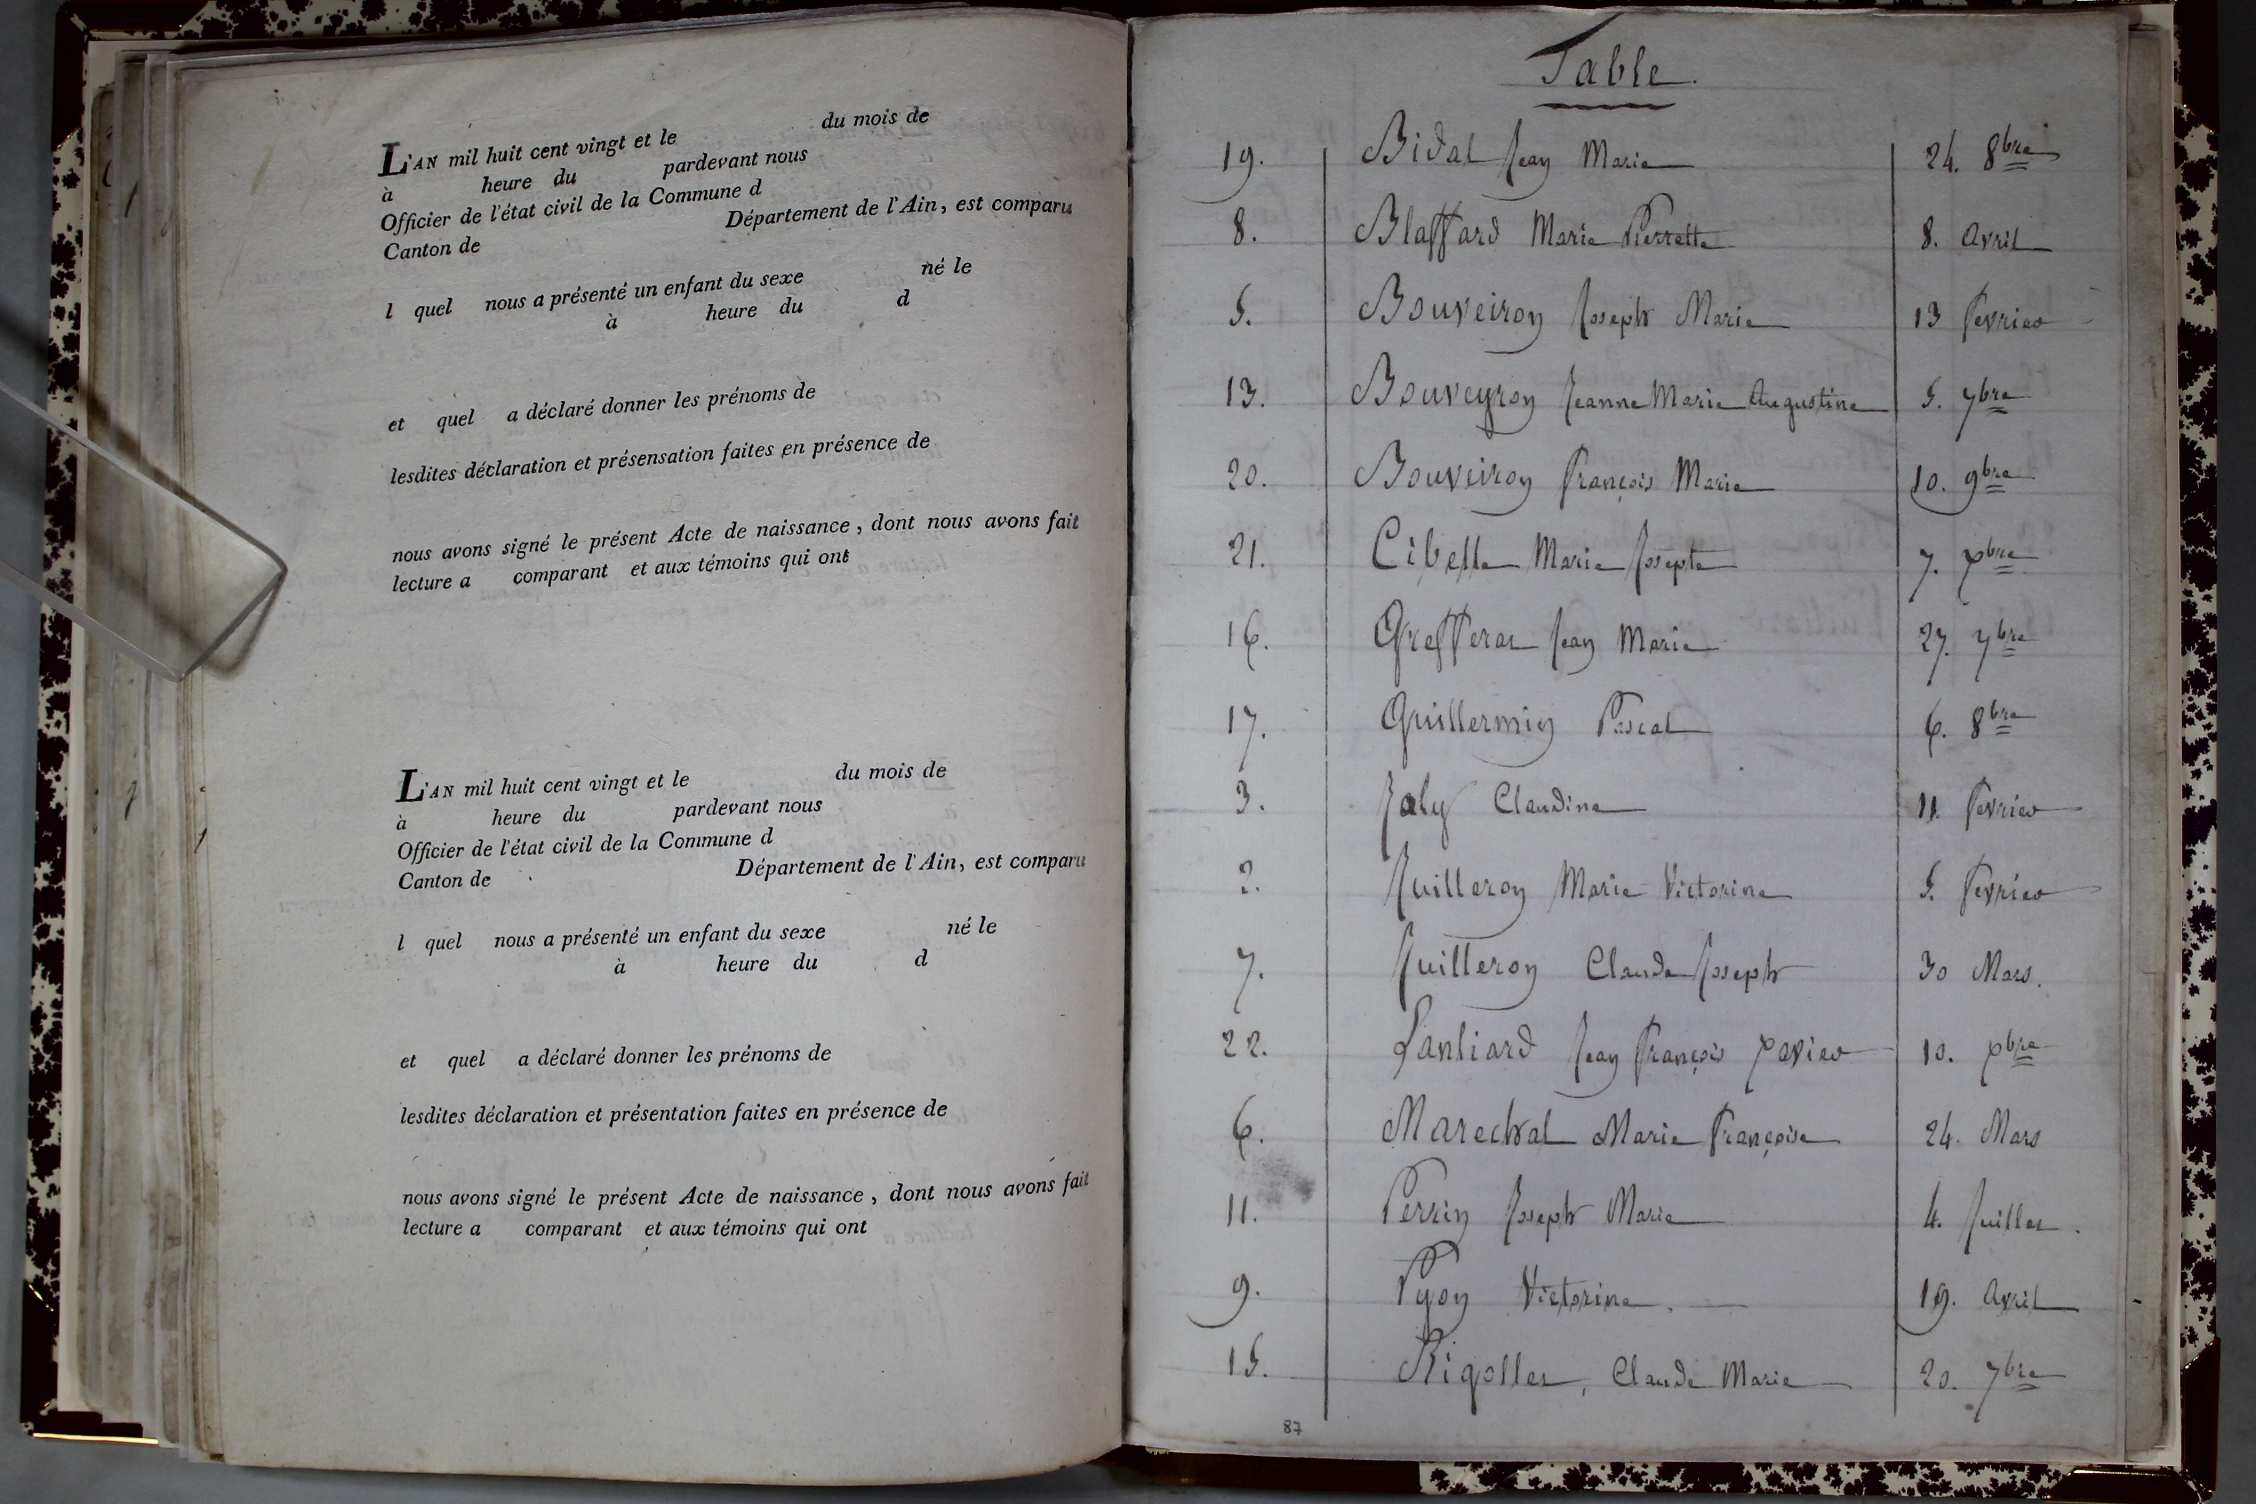 L'AN mil huit cent vingt et le du mois de
à heure du pardevant nous
Officier de l'état civil de la Commune d
Canton de Département de l'Ain, est comparu
l quel nous a présenté un enfant du sexe né le
à heure du d
et quel a déclaré donner les prénoms de
lesdites déclaration et présensation faites en présence de
nous avons signé le présent Acte de naissance, dont nous avons fait
lecture a comparant et aux témoins qui ont
L'AN mil huit cent vingt et le du mois de
à heure du pardevant nous
Officier de l'état civil de la Commune d
Canton de Département de l'Ain, est comparu
l quel nous a présenté un enfant du sexe né le
à heure du d
et quel a déclaré donner les prénoms de
lesdites déclaration et présentation faites en présence de
nous avons signé le présent Acte de naissance, dont nous avons fait
lecture a comparant et aux témoins qui ont
Table.
19. Bidal Jean Marie 24. 8bre
8. Blaffard Marie Pierrette 8. avril
5. Bouveiron Joseph Marie 13 fevrier
13. Bouveyron Jeanne Marie Augustine 5. 7bre
20. Bouveiron françois Marie 10. 9bre
21. Cibelle Marie Josepte 7. xbre
16. Grefferat Jean Marie 27. 7bre
17. Guillermin Pascal 6. 8bre
3. Jaly Claudine 11. fevrier
2. Juilleron Marie Victorine 5. fevrier
7. Juilleron Claude Joseph 30 Mars.
22. Lanliard Jean françois xavier 10. xbre
6. Marechal Marie françoise 24. Mars
11. Perrin Joseph Marie 4. Juillet.
9. Pyon Victorine. 19. avril
15. Rigollet, Claude Marie 20. 7bre
87